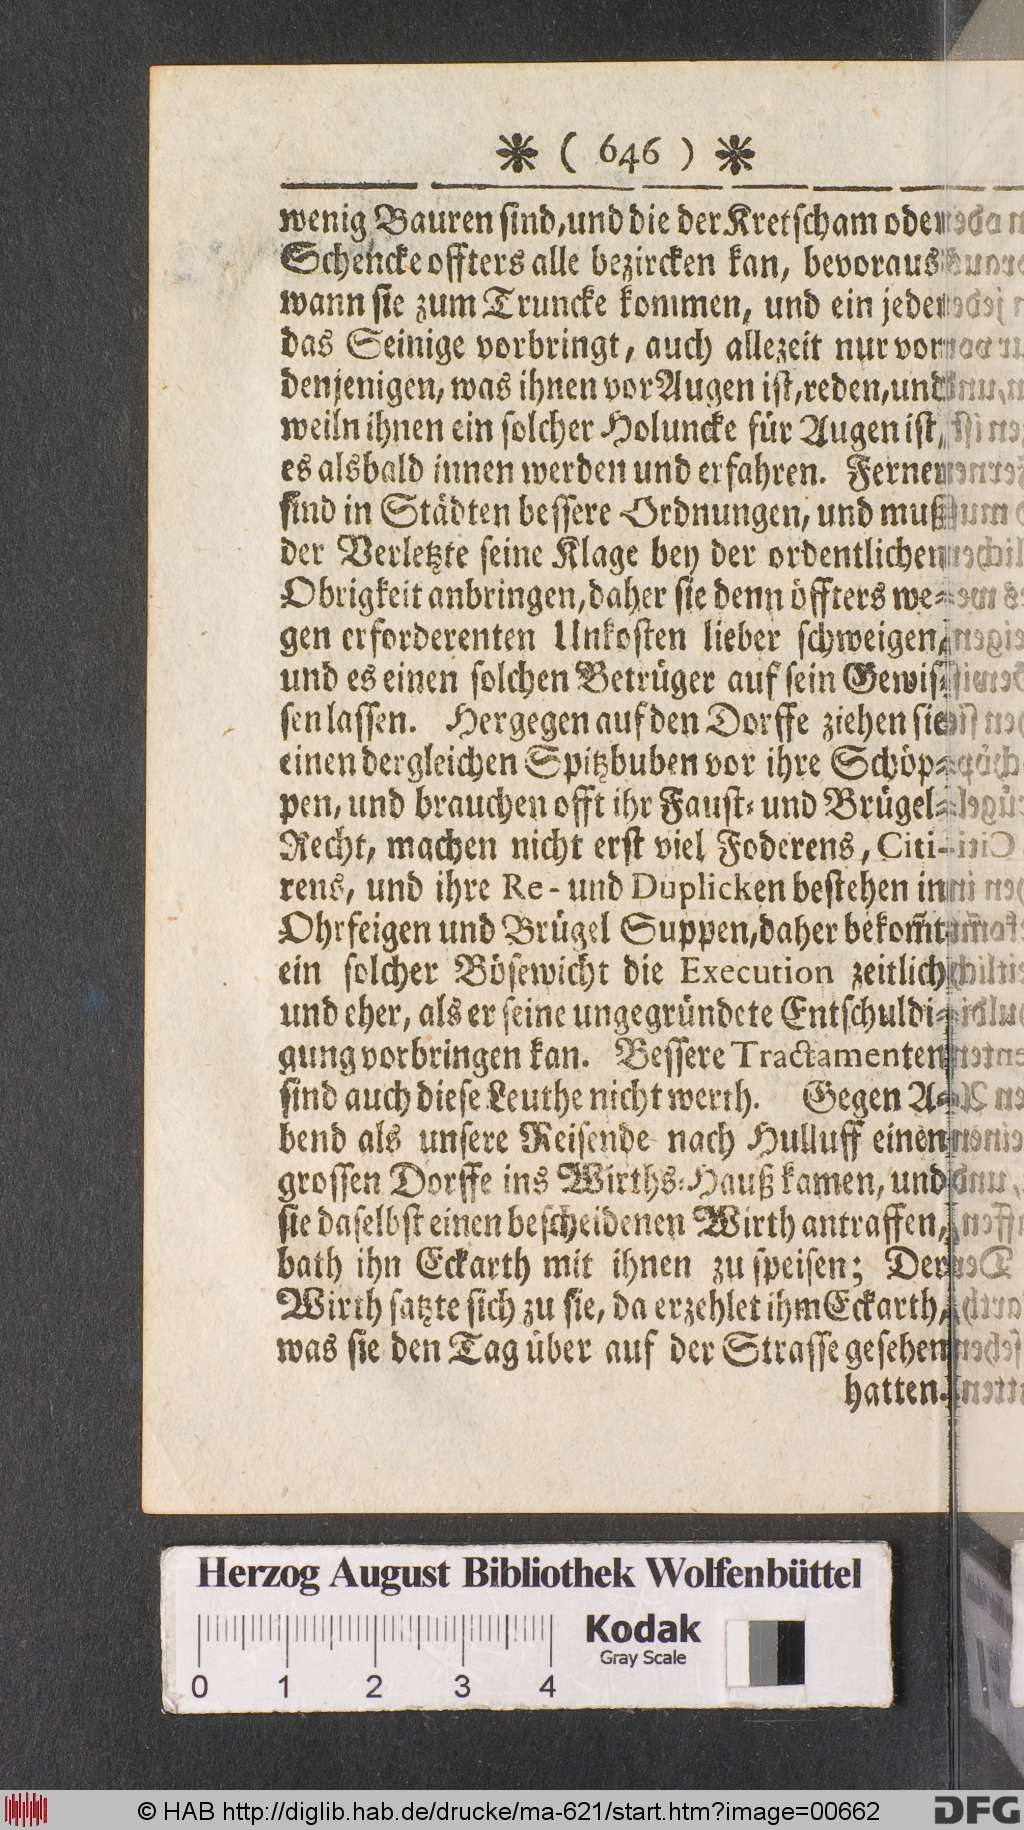 ❋ ( 646 ) ❋
wenig Bauren sind, und die der Kretscham oder
Schencke offters alle bezircken kan, bevoraus
wann sie zum Truncke kommen, und ein jeder
das Seinige vorbringt, auch allezeit nur von
denjenigen, was ihnen vor Augen ist, reden, und
weiln ihnen ein solcher Holuncke für Augen ist,
es alsbald innen werden und erfahren. Ferner
sind in Städten bessere Ordnungen, und muß
der Verletzte seine Klage bey der ordentlichen
Obrigkeit anbringen, daher sie denn öffters we-
gen erforderenten Unkosten lieber schweigen,
und es einen solchen Betrüger auf sein Gewis-
sen lassen. Hergegen auf den Dorffe ziehen sie
einen dergleichen Spitzbuben vor ihre Schöp-
pen, und brauchen offt ihr Faust- und Brügel-
Recht, machen nicht erst viel Foderens, Citi-
rens, und ihre Re- und Duplicken bestehen in
Ohrfeigen und Brügel Suppen, daher bekom̃t
ein solcher Bösewicht die Execution zeitlich
und eher, als er seine ungegründete Entschuldi-
gung vorbringen kan. Bessere Tractamenten
sind auch diese Leuthe nicht werth. Gegen A-
bend als unsere Reisende nach Hulluff einen
grossen Dorffe ins Wirths-Hauß kamen, und
sie daselbst einen bescheidenen Wirth antraffen,
bath ihn Eckarth mit ihnen zu speisen; Der
Wirth satzte sich zu sie, da erzehlet ihm Eckarth,
was sie den Tag über auf der Strasse gesehen
hatten.
Herzog August Bibliothek Wolfenbüttel
Kodak
Gray Scale
0 1 2 3 4
© HAB http://diglib.hab.de/drucke/ma-621/start.htm?image=00662
DFG